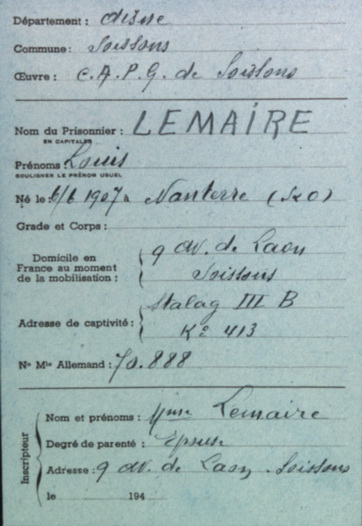 Département : Aisne
Commune : Soissons
Œuvre : C.A.P.G. de Soissons
Nom du Prisonnier : LEMAIRE
EN CAPITALES
Prénoms Louis
SOULIGNER LE PRÉNOM USUEL
Né le 6/6 1907 à Nanterre (S&O)
Grade et Corps :
Domicile en France au moment de la mobilisation : 9 av. de Laon Soissons
Adresse de captivité : Stalag III B Kº 413
Nº Mle Allemand : 70.888
Inscripteur
Nom et prénoms : Mme Lemaire
Degré de parenté : Epouse
Adresse : 9 av. de Laon. Soissons
le 194